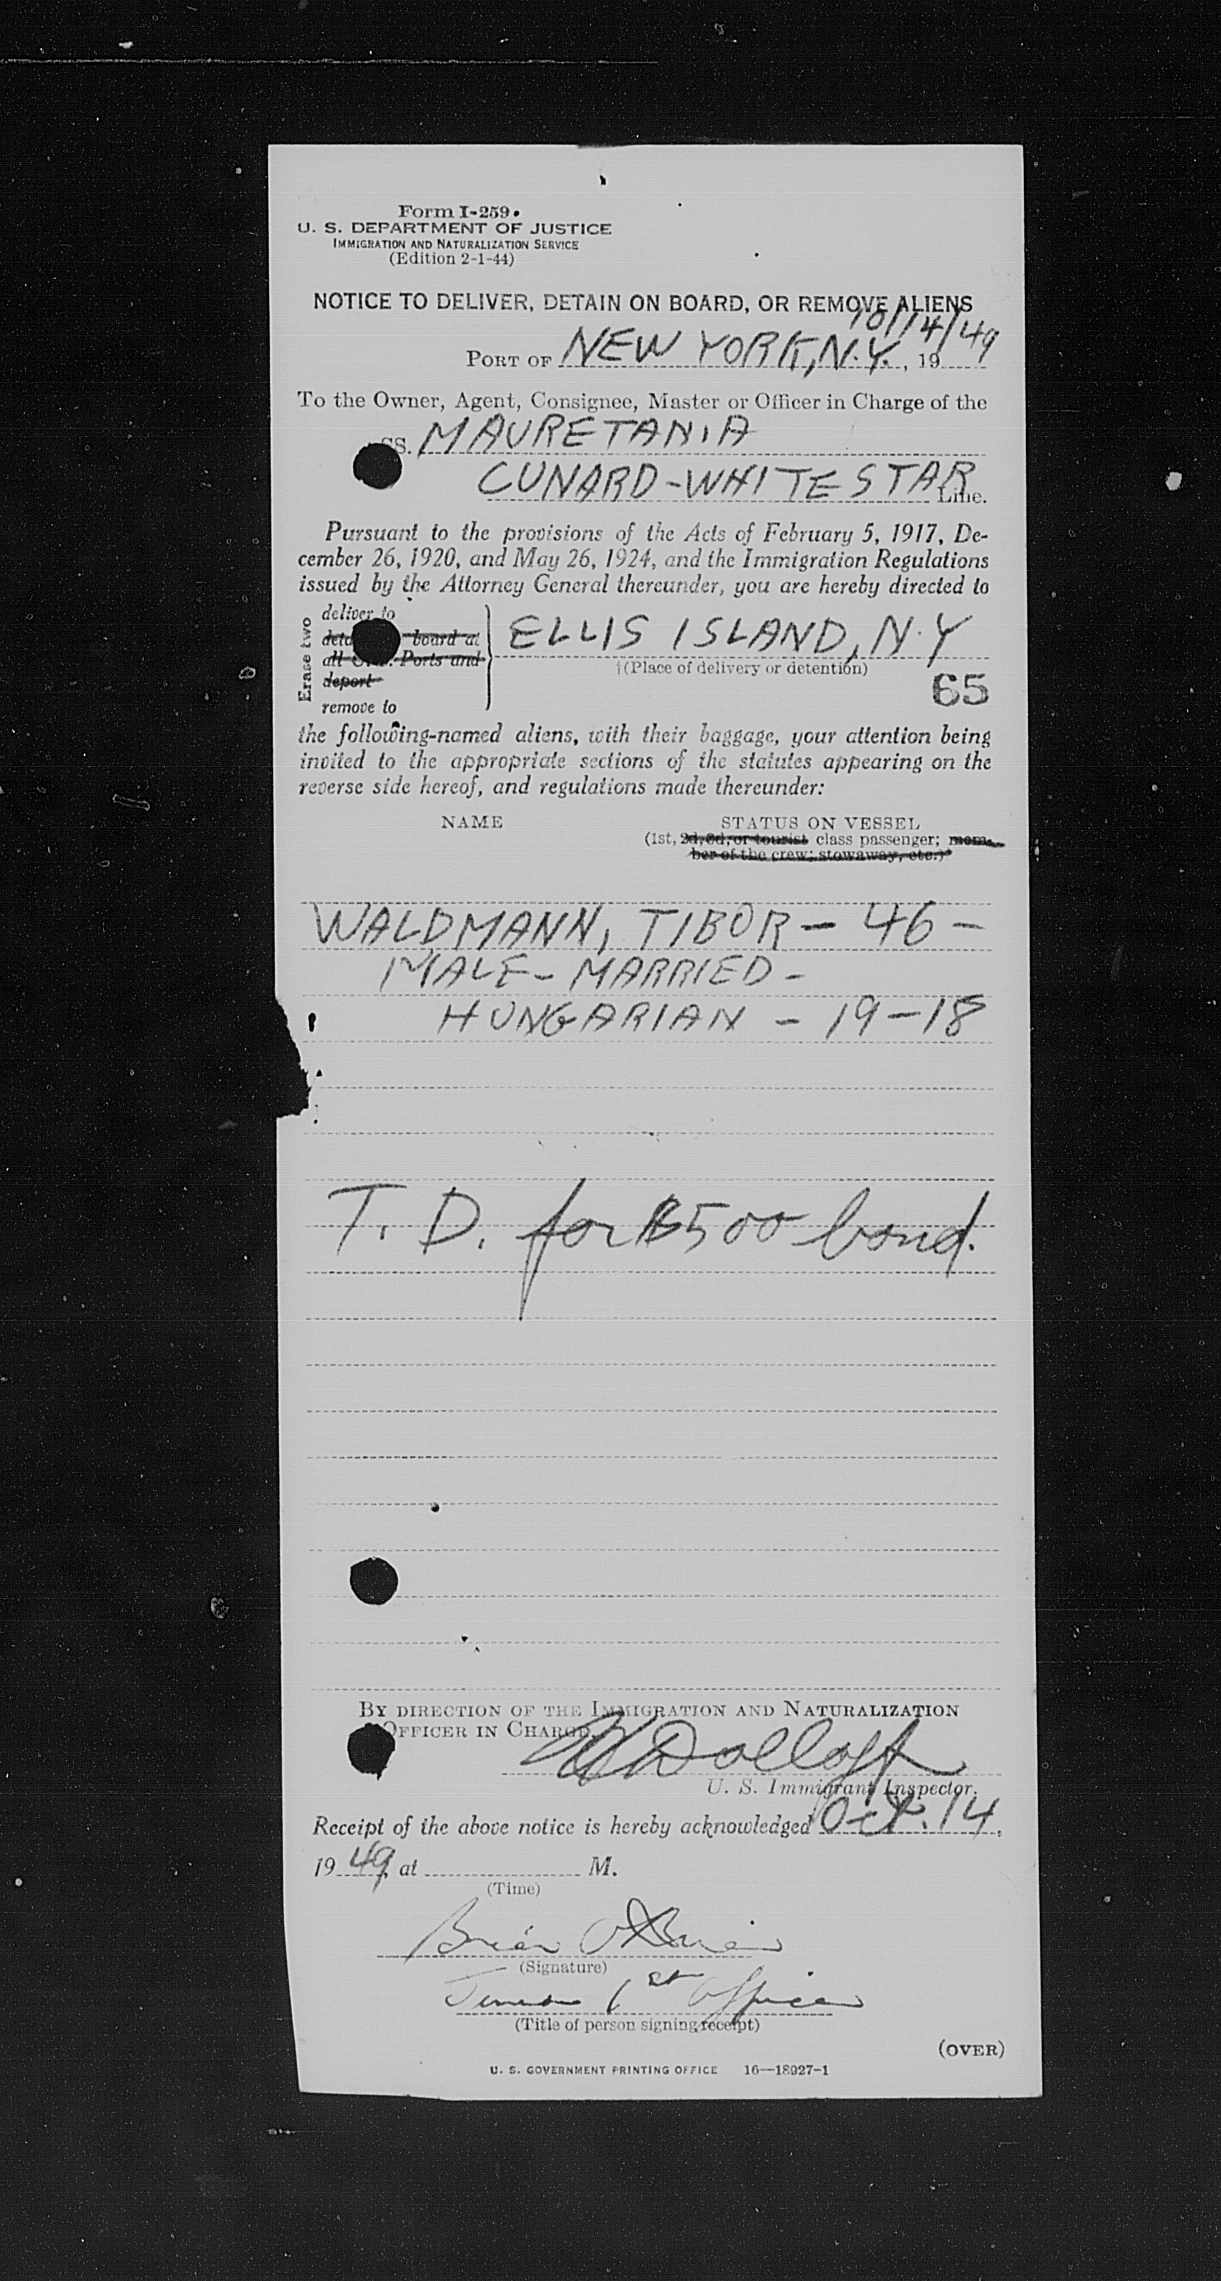 Form I-259
U. S. DEPARTMENT OF JUSTICE
IMMIGRATION AND NATURALIZATION SERVICE
(Edition 2-1-44)
NOTICE TO DELIVER, DETAIN ON BOARD, OR REMOVE ALIENS
10/14/49
PORT OF NEW YORK, N.Y., 19
To the Owner, Agent, Consignee, Master or Officer in Charge of the
SS. MAURETANIA
CUNARD-WHITE STAR Line.
Pursuant to the provisions of the Acts of February 5, 1917, De-
cember 26, 1920, and May 26, 1924, and the Immigration Regulations
issued by the Attorney General thereunder, you are hereby directed to
Erase two
deliver to
board at
all Ports and
deport
remove to
ELLIS ISLAND, N.Y
(Place of delivery or detention)
65
the following-named aliens, with their baggage, your attention being
invited to the appropriate sections of the statutes appearing on the
reverse side hereof, and regulations made thereunder:
NAME STATUS ON VESSEL
(1st, 2d, 3d, or tourist class passenger; mem-
ber of the crew; stowaway, etc.)
WALDMANN, TIBOR - 46 -
MALE - MARRIED -
HUNGARIAN - 19-18
T. D. for $500 bond.
BY DIRECTION OF THE IMMIGRATION AND NATURALIZATION
OFFICER IN CHARGE
U. S. Immigrant Inspector.
Receipt of the above notice is hereby acknowledged Oct. 14,
19 49, at M.
(Time)
Brian O'Brien
(Signature)
1st Officer
(Title of person signing receipt)
(OVER)
U. S. GOVERNMENT PRINTING OFFICE 16—18927-1